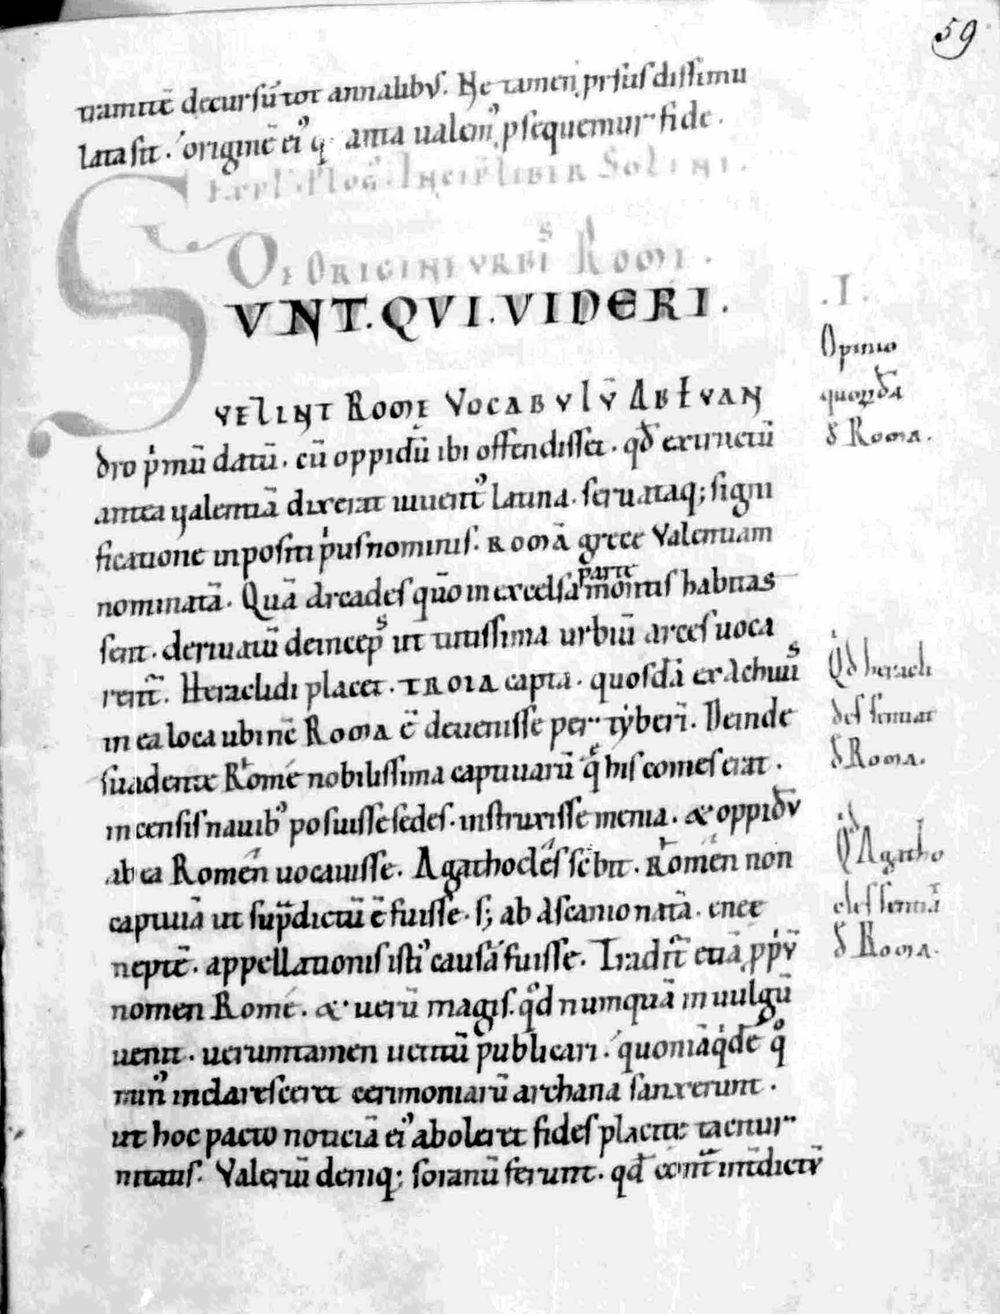 59
tramitē decursū tot annalibꝰ. Ne tamen prsus dissimu
lata sit. origine eiꝰ q̄ anta ualemꝰ psequemur fide.
Expl. Plog̃. Incip̄ liber Solini.
De origine urbis Rome.
SVNT. QVI. VIDERI.
velint Rome vocabulū ab Euan
dro pͥmū datū. cū oppidū ibi offendisset. qđ extructū
antea ualentiā dixerat iuuentꝰ latina. seruataq; signi
ficatione inpositi pͥus nominis. Romā grece Valentiam
nominatā. Quā Arcades qm̄o in excelsa parte montis habitas
sent. deriuatū deincepˢ ut tutissima urbiū arces uoca
rent̄. Heraclidi placet. TROIA capta. quosdā ex Achiuiˢ
in ea loca ubi nc̄ Roma ē deuenisse per tyberī. Deinde
suadente Rome nobilissima captiuarū q̄ his comes erat.
incensis nauibꝰ posuisse sedes. instruxisse menia. & oppidū
ab ea Romen uocauisse. Agathocles sc̄bit. Romen non
captiuā ut sup̄dictū ē fuisse. s; ab Ascanio natā. enee
neptē. appellationis istiꝰ causā fuisse. Tradit̄ etiā ppͥū
nomen Rome. & uerū magis. qđ numquā in uulgū
uenit. uerumtamen uetitū publicari. quoniā qͥdē qͦ
minꝰ inclaresceret cerimoniarū archana sanxerunt.
ut hoc pacto noticiā eiꝰ aboleret fides placite tacitur
nitatis. Valeriū deniq; soranū ferunt. qđ cont̄ int̄dictū
.I.
Opinio
quorūda
đ Roma.
Qđ heracli
des sentiat
đ Roma.
Qđ Agatho
cles sentiat
đ Roma.